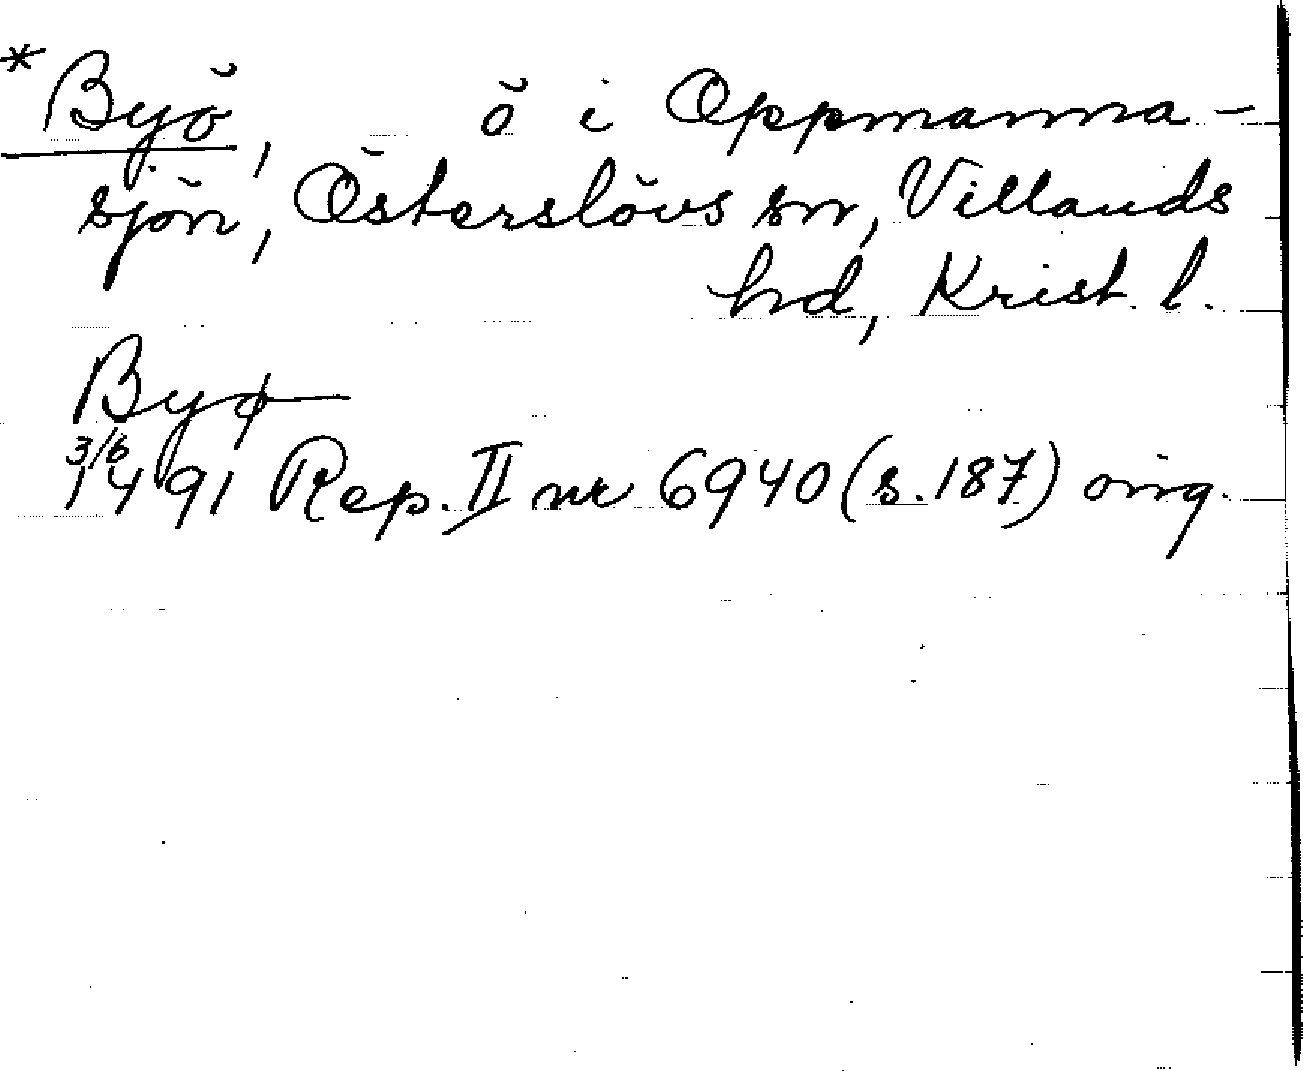 *Byö, ö i Oppmanna-
sjön, Österslövs sn, Villands
hd, Krist. l.
Byø
3/6
1491 Rep. II nr 6940 (s. 187) orig.